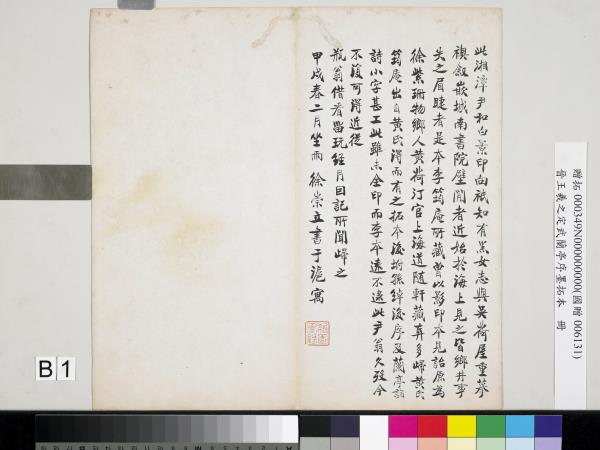 此湘潭尹和白景印向祇知有黑女志與吳荷屋重摹
禊敘嵌城南書院壁間者近始於海上見之皆鄉井事
失之眉睫者是本李筠庵所藏曾以影印本見詒原為
徐紫珊物鄉人黃荷汀官上海道隨軒藏弆多歸黃氏
筠庵出自黃氏得而有之拓本後坿孫綽後序及蘭亭諸
詩小字甚工此雖未全印而李本遠不逮此尹翁久歿今
不復可得近從
瓶翁借看留玩經月因記所聞歸之
甲戌春二月坐雨 徐崇立書于 寓
贈拓 000349N000000000(國贈 006131)
晉王羲之定武蘭亭序墨拓本 冊
B 1